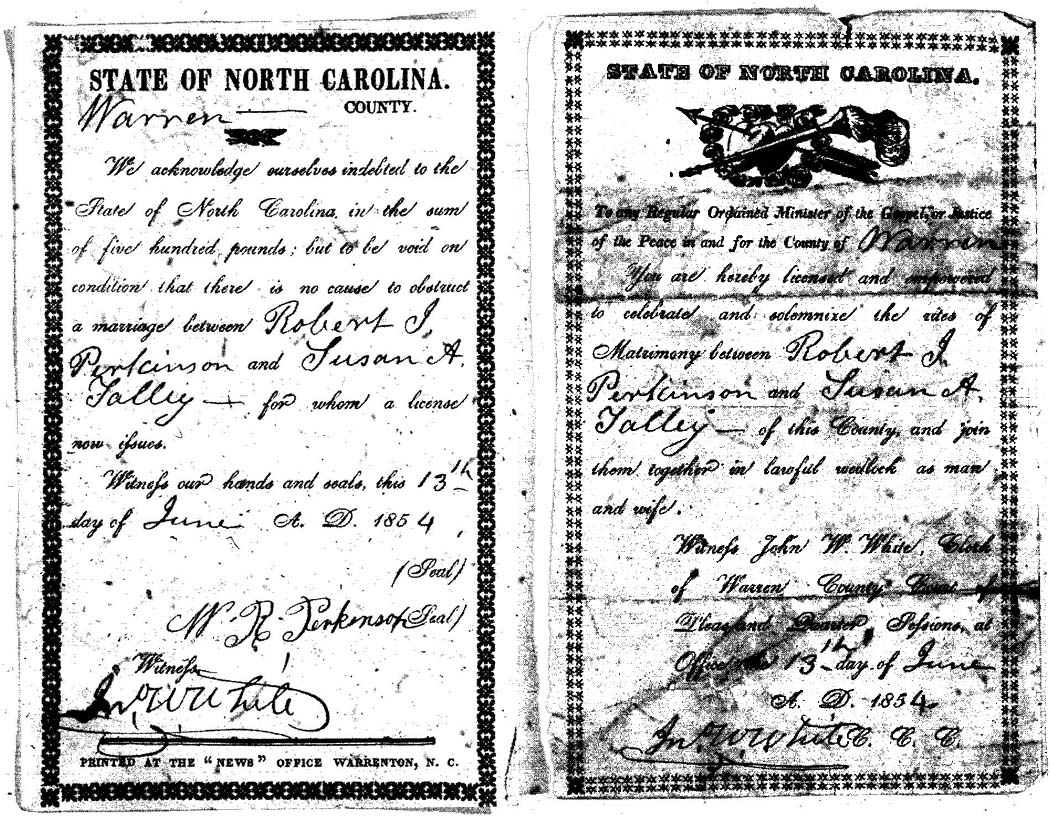 STATE OF NORTH CAROLINA.
Warren COUNTY.
We acknowledge ourselves indebted to the
State of North Carolina, in the sum
of five hundred pounds; but to be void on
condition that there is no cause to obstruct
a marriage between Robert J.
Perkinson and Susan A.
Talley — for whom a license
now issues.
Witness our hands and seals, this 13th
day of June A. D. 1854,
(Seal)
W. R. Perkinson (Seal)
Witness
Jno. W White
PRINTED AT THE "NEWS" OFFICE WARRENTON, N. C.
STATE OF NORTH CAROLINA.
To any Regular Ordained Minister of the Gospel, or Justice
of the Peace in and for the County of Warren
You are hereby licensed and empowered
to celebrate and solemnize the rites of
Matrimony between Robert J.
Perkinson and Susan A.
Talley — of this County, and join
them together in lawful wedlock as man
and wife.
Witness John W. White, Clerk
of Warren County Court of
Pleas and Quarter Sessions, at
Office the 13th day of June
A. D. 1854.
Jno. W White C. C. C.